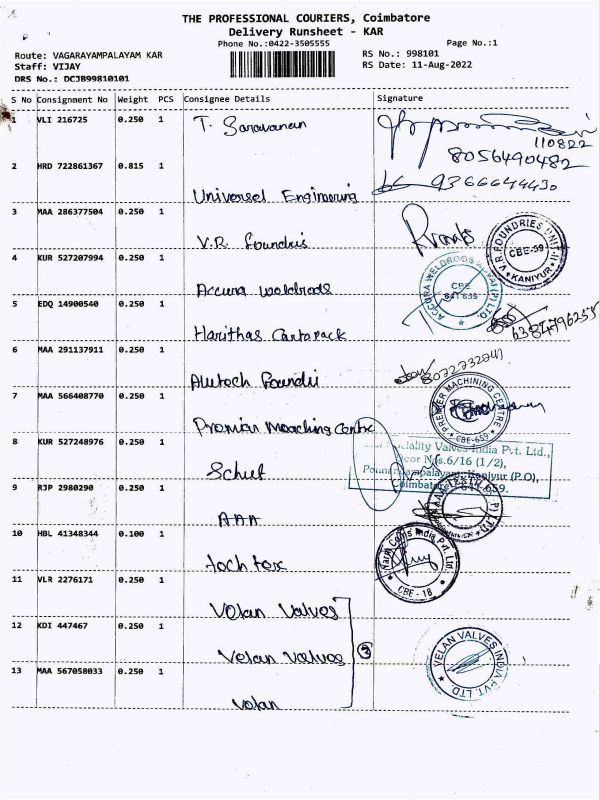 THE PROFESSIONAL COURIERS, Coimbatore
Delivery Runsheet - KAR
Phone No.:0422-3505555
Page No.:1
Route: VAGARAYAMPALAYAM KAR
RS No.: 998101
Staff: VIJAY
RS Date: 11-Aug-2022
DRS No.: DCJB99810101
S No Consignment No Weight PCS Consignee Details Signature
1 VLI 216725 0.250 1 T. Saravanan
110822
8056490482
2 HRD 722861367 0.815 1 Universel Engineering 9366644430
3 MAA 286377504 0.250 1 V.R. Foundris
V.R. FOUNDRIES UNIT-II
CBE-59
KANIYUR
4 KUR 527207994 0.250 1 Accura weldrods
ACCURA WELDRODS (P) LTD.
CBE
641 659
5 EDQ 14900540 0.250 1 Harithas Cartopack
6384796255
6 MAA 291137911 0.250 1 Foundri
7 MAA 566408770 0.250 1 Centre
PREMIER MACHINING CENTRE
CBE-659
8 KUR 527248976 0.250 1
Valves India Pvt. Ltd.,
Door Nos.6/16 (1/2),
Kaniyur (P.O),
Coimbatore - 641 659.
9 RJP 2980290 0.250 1 AAA
10 HBL 41348344 0.100 1
India Pvt. Ltd
CBE - 18
11 VLR 2276171 0.250 1 Velan Valves
12 KDI 447467 0.250 1 Velan Valves
3
VELAN VALVES INDIA PVT. LTD.
13 MAA 567058033 0.250 1 Velan